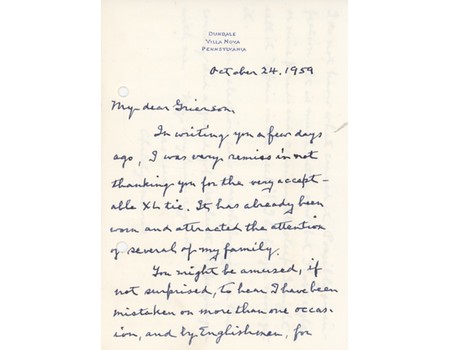 DUNDALE
VILLA NOVA
PENNSYLVANIA
October 24. 1959
My dear Grierson,
In writing you a few days
ago, I was very remiss in not
thanking you for the very accept-
able XL tie. It has already been
worn and attracted the attention
of several of my family.
You might be amused, if
not surprised, to hear I have been
mistaken on more than one occas-
ion, and by Englishmen, for